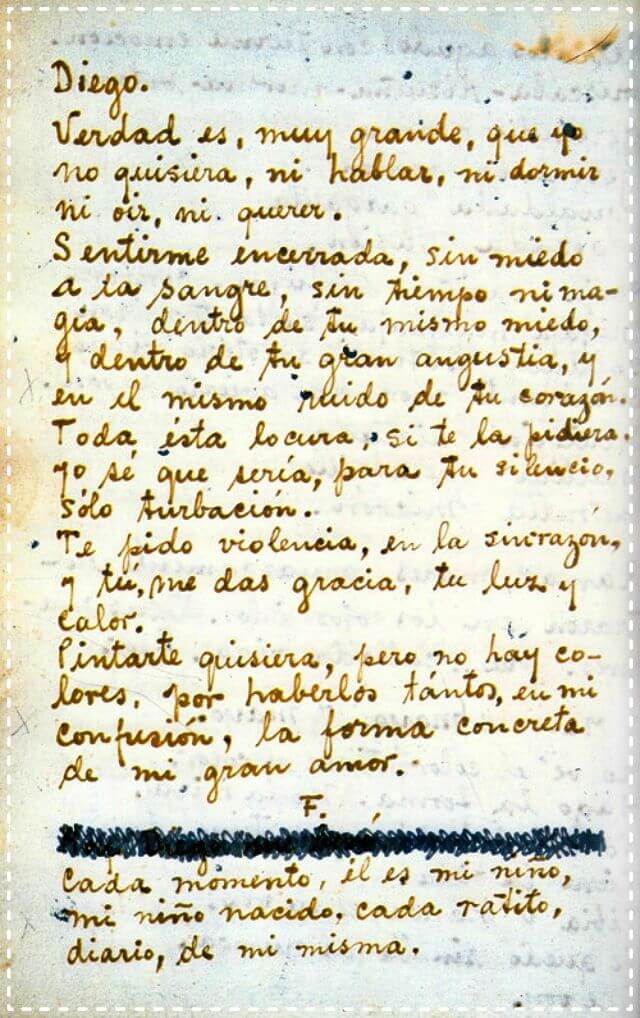 Diego.
Verdad es, muy grande, que yo
no quisiera, ni hablar, ni dormir
ni oir, ni querer.
Sentirme encerrada, sin miedo
a la sangre, sin tiempo ni ma-
gia, dentro de tu mismo miedo,
y dentro de tu gran angustia, y
en el mismo ruido de tu corazón.
Toda ésta locura, si te la pidiera,
yo sé que sería, para tu silencio,
sólo turbación.
Te pido violencia, en la sinrazón,
y tú, me das gracia, tu luz y
calor.
Pintarte quisiera, pero no hay co-
lores, por haberlos tántos, en mi
confusión, la forma concreta
de mi gran amor.
F.
Cada momento, él es mi niño,
mi niño nacido, cada ratito,
diario, de mi misma.